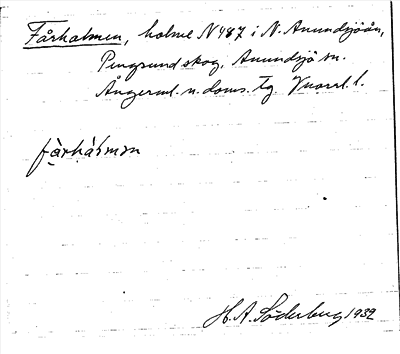 Fårholmen, holme N 487 i N. Anundsjöån,
Pengsund skog, Anundsjö sn.
Ångerml. n. doms. tg. Vnorrl. l.
fàrhálmɔn
H. A. Söderberg 1932